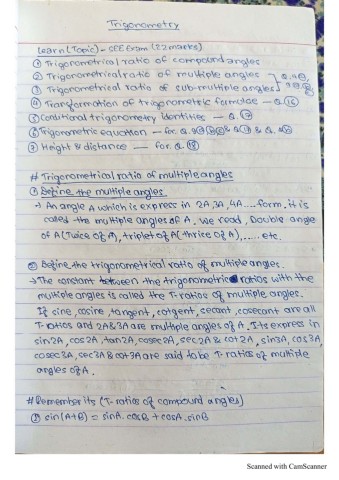 Trigonometry
Learn (Topic) - SEE Exam (22 marks)
① Trigonometrical ratio of compound angles
② Trigonometrical ratio of multiple angles
③ Trigonometrical ratio of sub-multiple angles
④ Transformation of trigonometric formulae - Q. 16
⑤ Conditional trigonometry identities - Q.
⑥ Trigonometric equation - for Q.
⑦ Height & distance - for Q. 18
# Trigonometrical ratio of multiple angles
① Define the multiple angles.
→ An angle A which is express in 2A, 3A, 4A ..... form, it is
called the multiple angles of A. We read, Double angle
of A (Twice of A), triplet of A (thrice of A), ..... etc.
② Define the trigonometrical ratio of multiple angles.
→ The constant between the trigonometric ratios with the
multiple angles is called the T-ratios of multiple angles.
If sine, cosine, tangent, cotgent, secant, cosecant are all
T-ratios and 2A & 3A are multiple angles of A. Its express in
sin2A, cos2A, tan2A, cosec2A, sec2A & cot2A, sin3A, cos3A,
cosec3A, sec3A & cot3A are said to be T-ratios of multiple
angles of A.
# Remember its (T-ratios of compound angles)
① sin(A+B) = sinA. cosB + cosA. sinB
Scanned with CamScanner